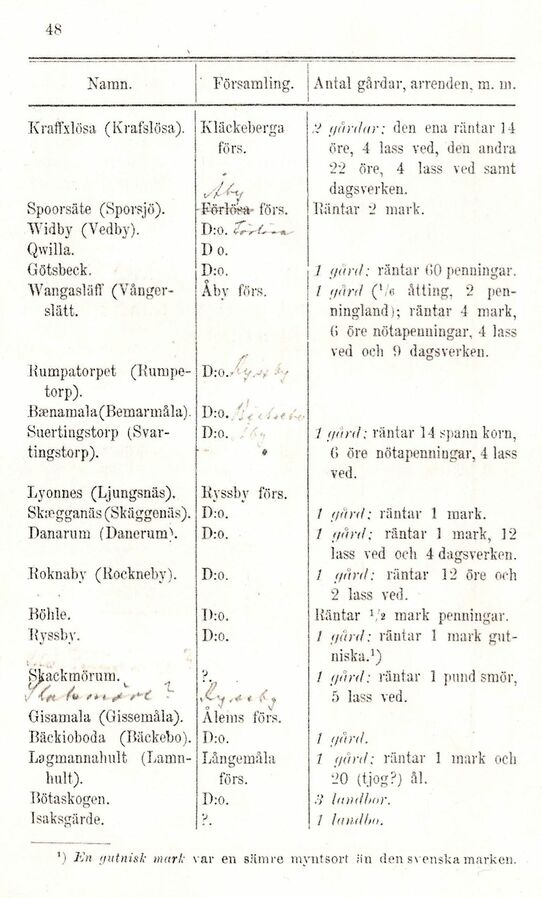 48
Namn. Församling. Antal gårdar, arrenden, m. m.
Kraffxlösa (Krafslösa). Kläckeberga 2 gårdar; den ena räntar 14
förs. öre, 4 lass ved, den andra
22 öre, 4 lass ved samt
Åby dagsverken.
Spoorsäte (Sporsjö). Förlösa förs. Räntar 2 mark.
Widby (Vedby). D:o. Förlösa
Qwilla. D o.
Götsbeck. D:o. 1 gård; räntar 60 penningar.
Wangasläff (Vånger- Åby förs. 1 gård (1/6 åtting, 2 pen-
slätt. ningland); räntar 4 mark,
6 öre nötapenningar, 4 lass
ved och 9 dagsverken.
Rumpatorpet (Rumpe- D:o. Ryssby
torp).
Bænamala (Bemarmåla). D:o.
Suertingstorp (Svar- D:o. Åby 1 gård; räntar 14 spann korn,
tingstorp). 6 öre nötapenningar, 4 lass
ved.
Lyonnes (Ljungsnäs). Ryssby förs.
Skægganäs (Skäggenäs). D:o. 1 gård; räntar 1 mark.
Danarum (Danerum). D:o. 1 gård; räntar 1 mark, 12
lass ved och 4 dagsverken.
Roknaby (Rockneby). D:o. 1 gård; räntar 12 öre och
2 lass ved.
Böhle. D:o. Räntar 1/2 mark penningar.
Ryssby. D:o. 1 gård; räntar 1 mark gut-
niska.¹)
Skackmörum. ?. 1 gård; räntar 1 pund smör,
Slakmöre ? Ryssby 5 lass ved.
Gisamala (Gissemåla). Ålems förs.
Bäckioboda (Bäckebo). D:o. 1 gård.
Lagmannahult (Lamn- Långemåla 1 gård; räntar 1 mark och
hult). förs. 20 (tjog?) ål.
Bötaskogen. D:o. 3 landbor.
Isaksgärde. ?. 1 landbo.
¹) En gutnisk mark var en sämre myntsort än den svenska marken.